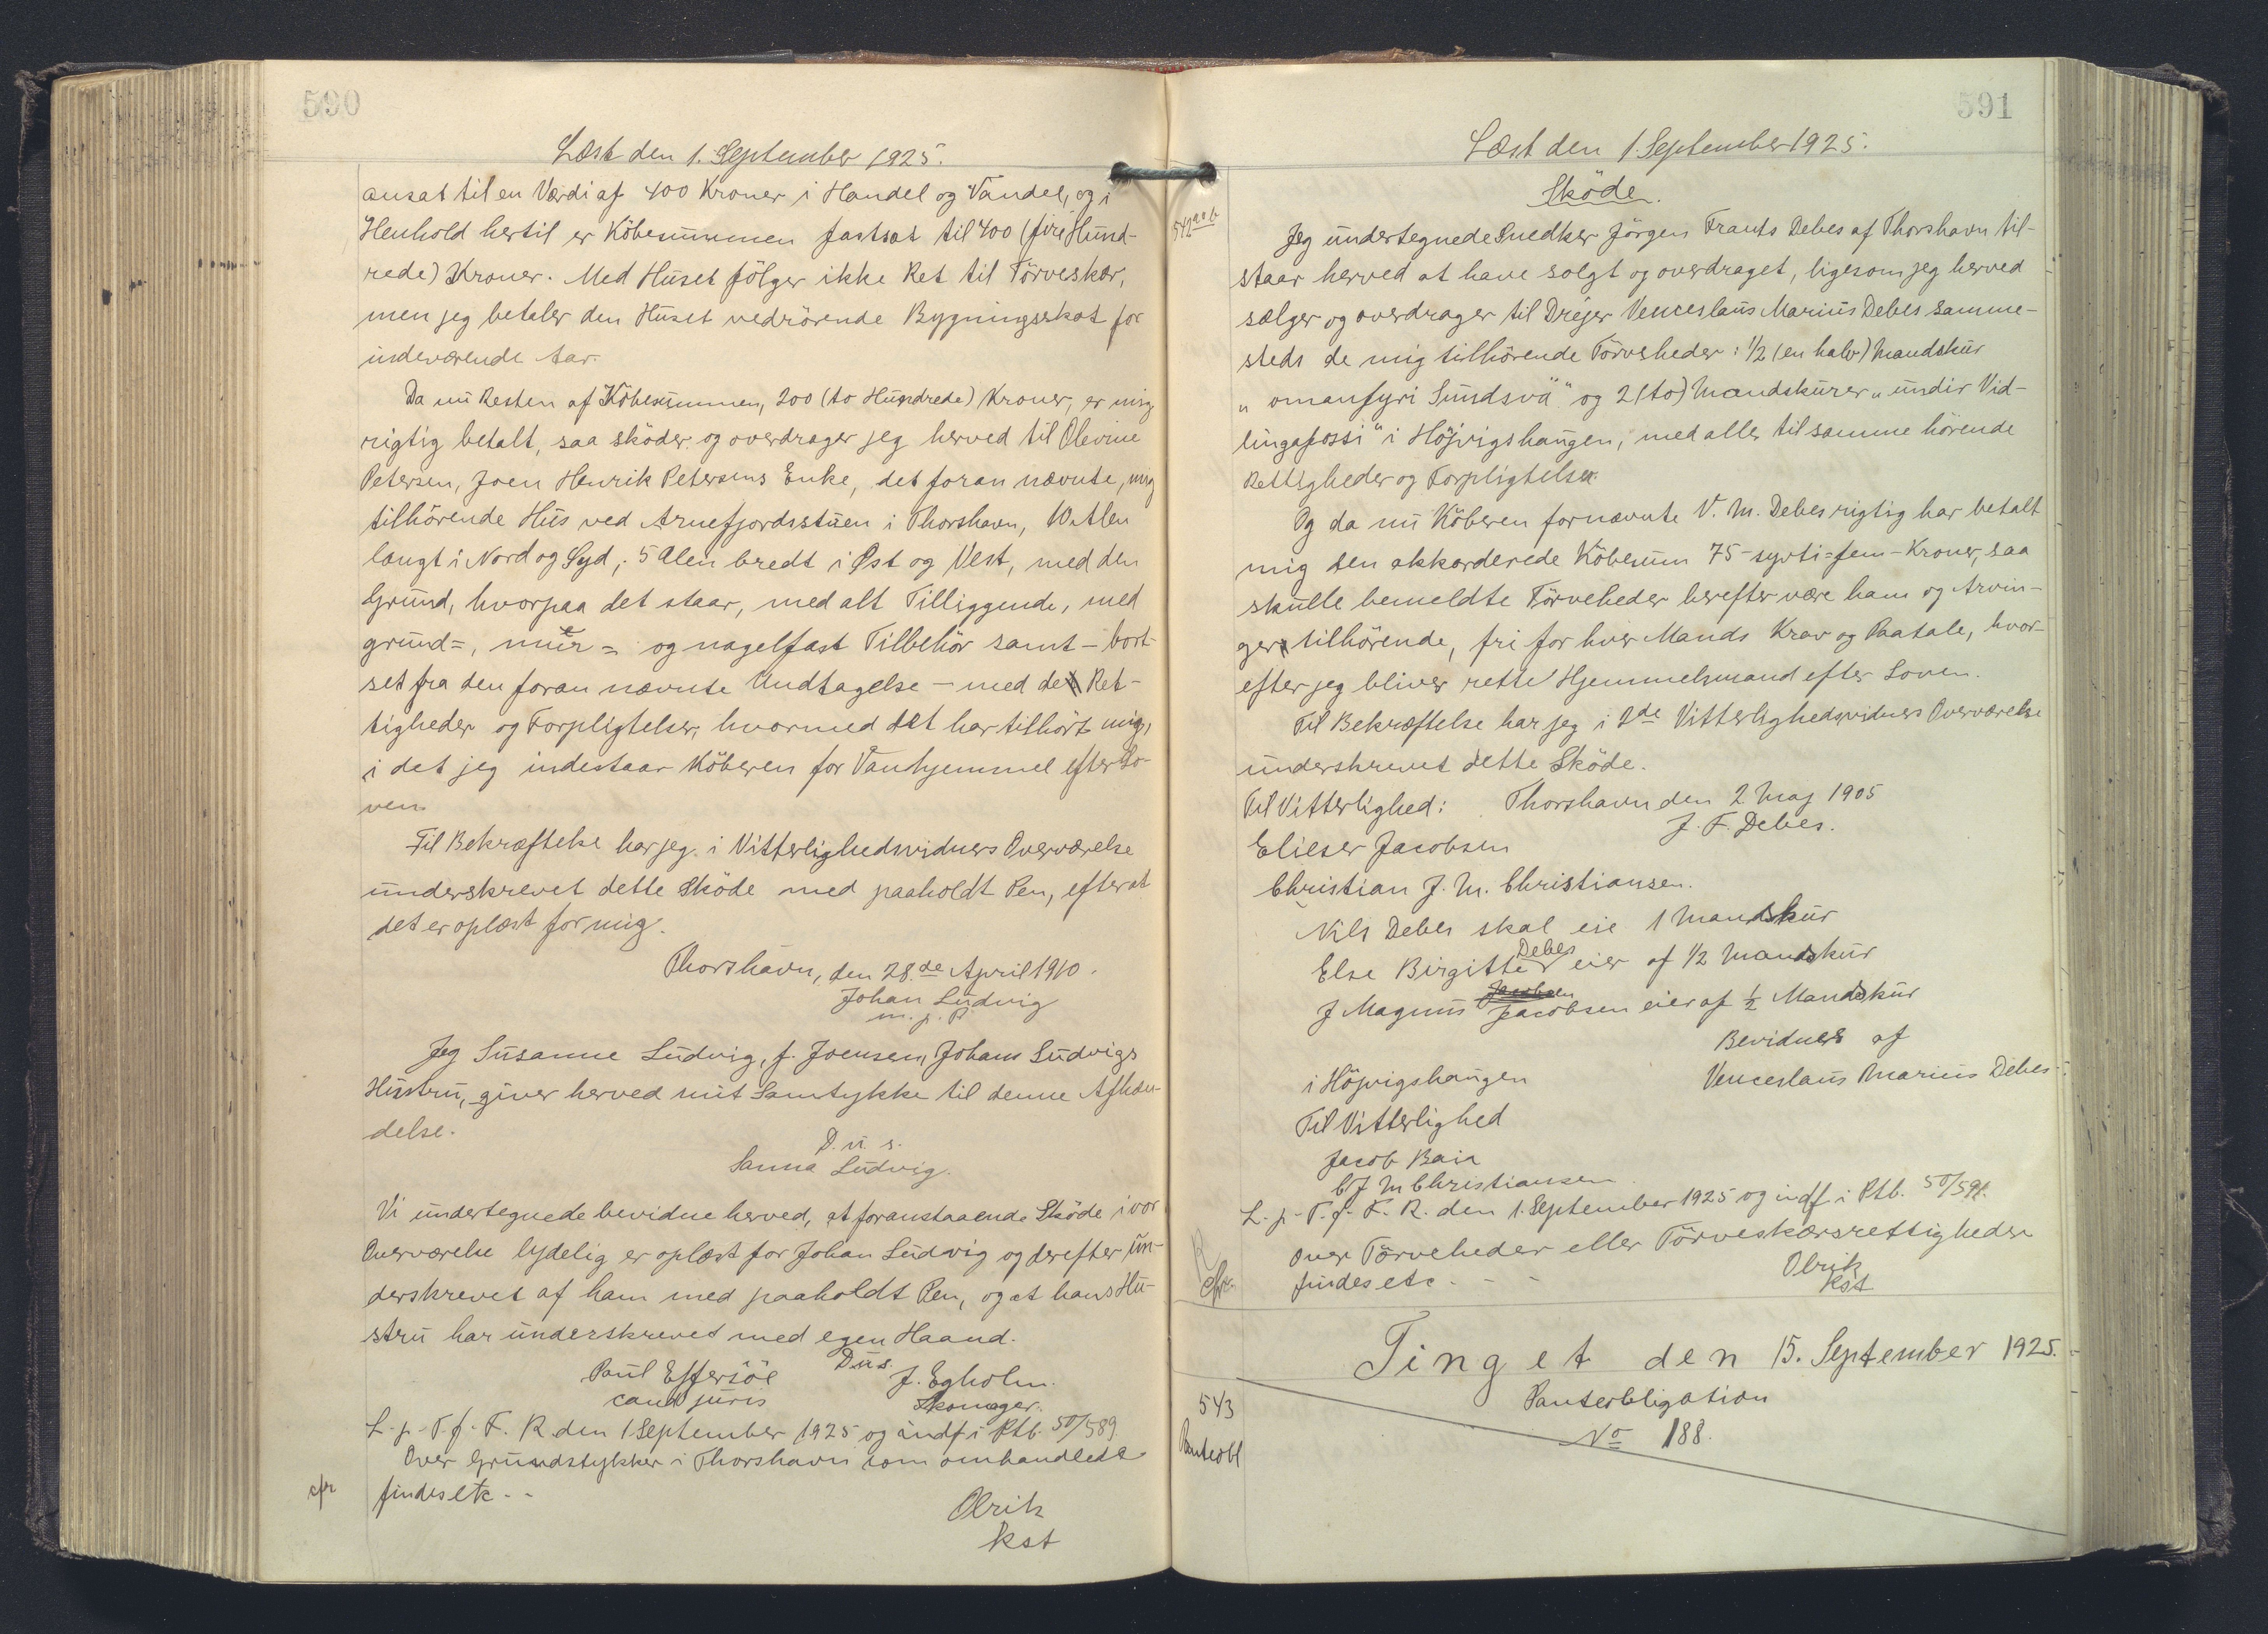 590
Læst den 1. September 1925.
ansat til en Værdi af 400 Kroner i Handel og Vandel, og i
Henhold hertil er Köbesummen fastsat til 400 (fire Hund-
rede) Kroner. Med Huset fölger ikke Ret til Törveskær,
men jeg betaler den Huset vedrörende Bygningsskat for
indeværende Aar.
Da nu Resten af Köbesummen, 200 (to Hundrede) Kroner, er mig
rigtig betalt, saa sköder og overdrager jeg herved til Olevine
Petersen, Joen Henrik Petersens Enke, det foran nævnte, mig
tilhörende Hus ved Arnefjordsstuen i Thorshavn, 10 Alen
langt i Nord og Syd, 5 Alen bredt i Øst og Vest, med den
Grund, hvorpaa det staar, med alt Tilliggende, med
grund=, mur= og nagelfast Tilbehör samt – bort-
set fra den foran nævnte Undtagelse – med de Ret-
tigheder og Forpligtelser, hvormed det har tilhört mig,
i det jeg indestaar Köberen for Vanhjemmel efter Lo-
ven
Til Bekræftelse har jeg i Vitterlighedsvidners Overværelse
underskrevet dette Sköde med paaholdt Pen, efter at
det er oplæst for mig.
Thorshavn, den 28.de April 1910.
Johan Ludvig
m. p. P
Jeg Susanne Ludvig, f. Joensen, Johans Ludvigs
Hustru, giver herved mit Samtykke til denne Afhæn-
delse.
D. u s.
Sanna Ludvig.
Vi undertegnede bevidne herved, at foranstaaende Sköde i vor
Overværelse lydelig er oplæst for Johan Ludvig og derefter un-
derskrevet af ham med paaholdt Pen, og at hans Hu-
stru har underskrevet med egen Haand.
D u s.
Paul Effersöe J. Egholm.
cand juris Skomager.
L. p. T. f. F. R. den 1 September 1925 og indf i Ptb. 50/589
Over Grundstykker i Thorshavn som omhandlede
cfr findes etc - -
Olrik
kst
591
Læst den 1. September 1925.
Sköde.
542
Jeg undertegnede Snedker Jörgen Frants Debes af Thorshavn til-
staar herved at have solgt og overdraget, ligesom jeg herved
sælger og overdrager til Drejer Venceslaus Marius Debes samme-
steds de mig tilhörende Törveheder: 1/2 (en halv) Mandskur
„omanfyri Sundsvä" og 2 (to) Mandskurer „undir Vid-
lingafossi" i Höjvigshaugen, med alle til samme hörende
Rettigheder og Forpligtelser.
Og da nu Köberen fornævnte V. M. Debes rigtig har betalt
mig den akkorderede Köbesum 75 - syvti=fem - Kroner, saa
skulle bemeldte Törveheder herefter være ham og Arvin-
ger tilhörende, fri for hver Mands Krav og Paatale, hvor-
efter jeg bliver rette Hjemmelsmand efter Loven.
Til Bekræftelse har jeg i 2de Vitterlighedsvidners Overværelse
underskrevet dette Sköde.
Til Vitterlighed: Thorshavn den 2 Maj 1905
J. F. Debes.
Elieser Jacobsen
Christian J. M. Christiansen.
Nils Debes skal eie 1 Mandskur
Else Birgitte Debes eier af 1/2 Mandskur
J Magnus Jacobsen eier af 1/2 Mandskur
Bevidnes af
i Höjvigshaugen Venceslaus Marius Debes
Til Vitterlighed
Jacob Baia
C J M Christiansen
L. p. T. f. F. R. den 1. September 1925 og indf. i Ptb. 50/591.
Over Törveheder eller Törveskærsrettigheder
cfr. findes etc - - -
Olrik
kst
Tinget den 15. September 1925.
543 Panteobligation
Panteobl No 188.